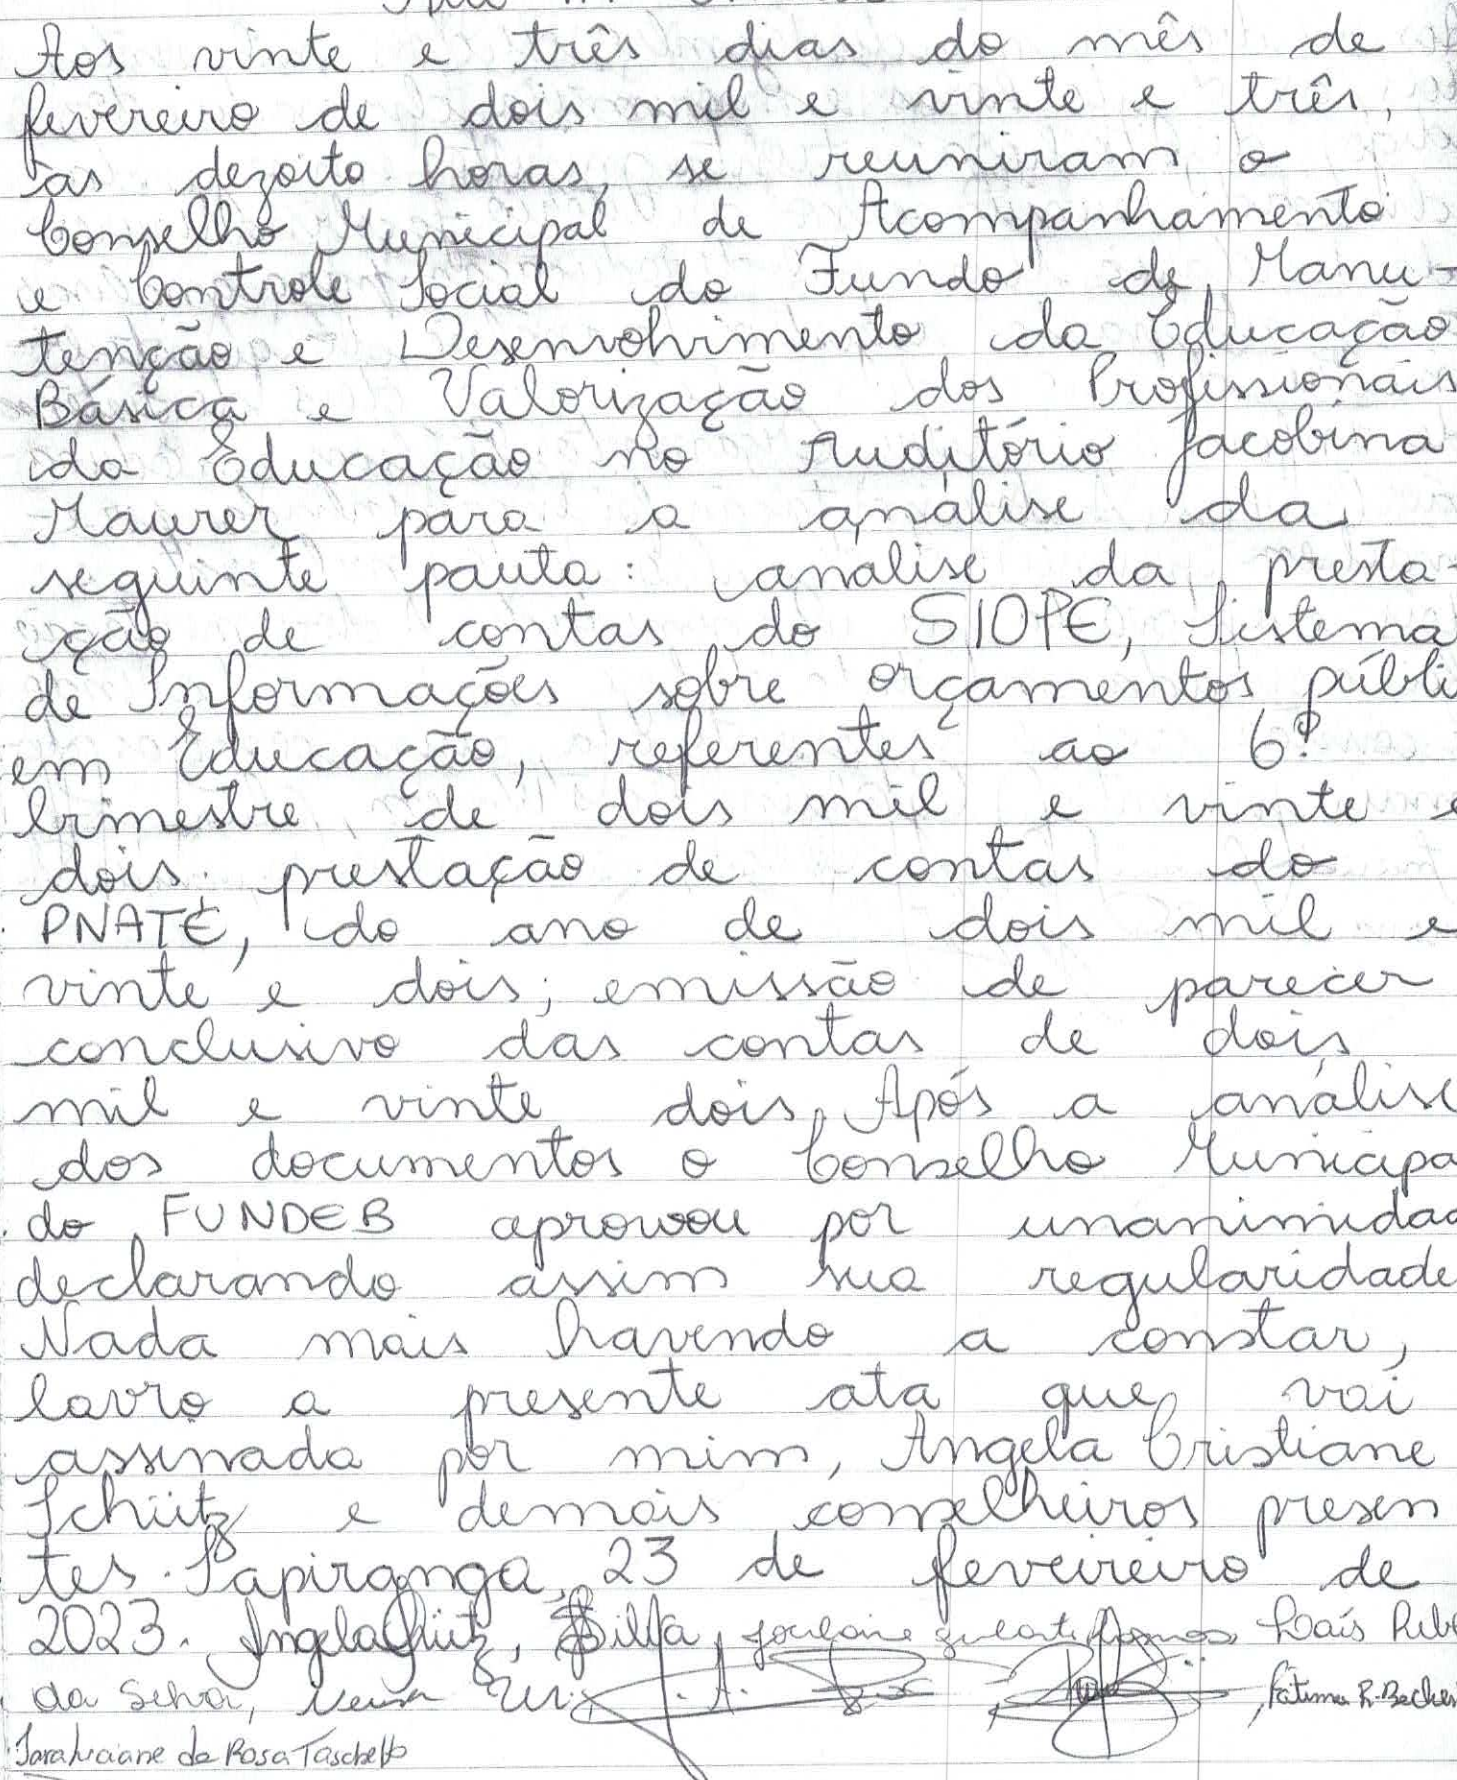 Aos vinte e três dias do mês de
fevereiro de dois mil e vinte e três,
às dezoito horas, se reuniram o
Conselho Municipal de Acompanhamento
e Controle Social do Fundo de Manu-
tenção e Desenvolvimento da Educação
Básica e Valorização dos Profissionais
da Educação no Auditório Jacobina
Maurer para a análise da
seguinte pauta: análise da presta-
ção de contas do SIOPE, Sistema
de Informações sobre orçamentos públi
em Educação, referentes ao 6º
bimestre de dois mil e vinte e
dois; prestação de contas do
PNATE, do ano de dois mil e
vinte e dois; emissão de parecer
conclusivo das contas de dois
mil e vinte dois. Após a análise
dos documentos o Conselho Municipa
do FUNDEB aprovou por unanimidad
declarando assim sua regularidade
Nada mais havendo a constar,
lavro a presente ata que vai
assinada por mim, Angela Cristiane
Schütz e demais conselheiros presen
tes. Sapiranga, 23 de fevereiro de
2023. Angela Schütz, Silva, Laís Rib
da Silva, Fátima R. Becker
de Rosa Taschetto